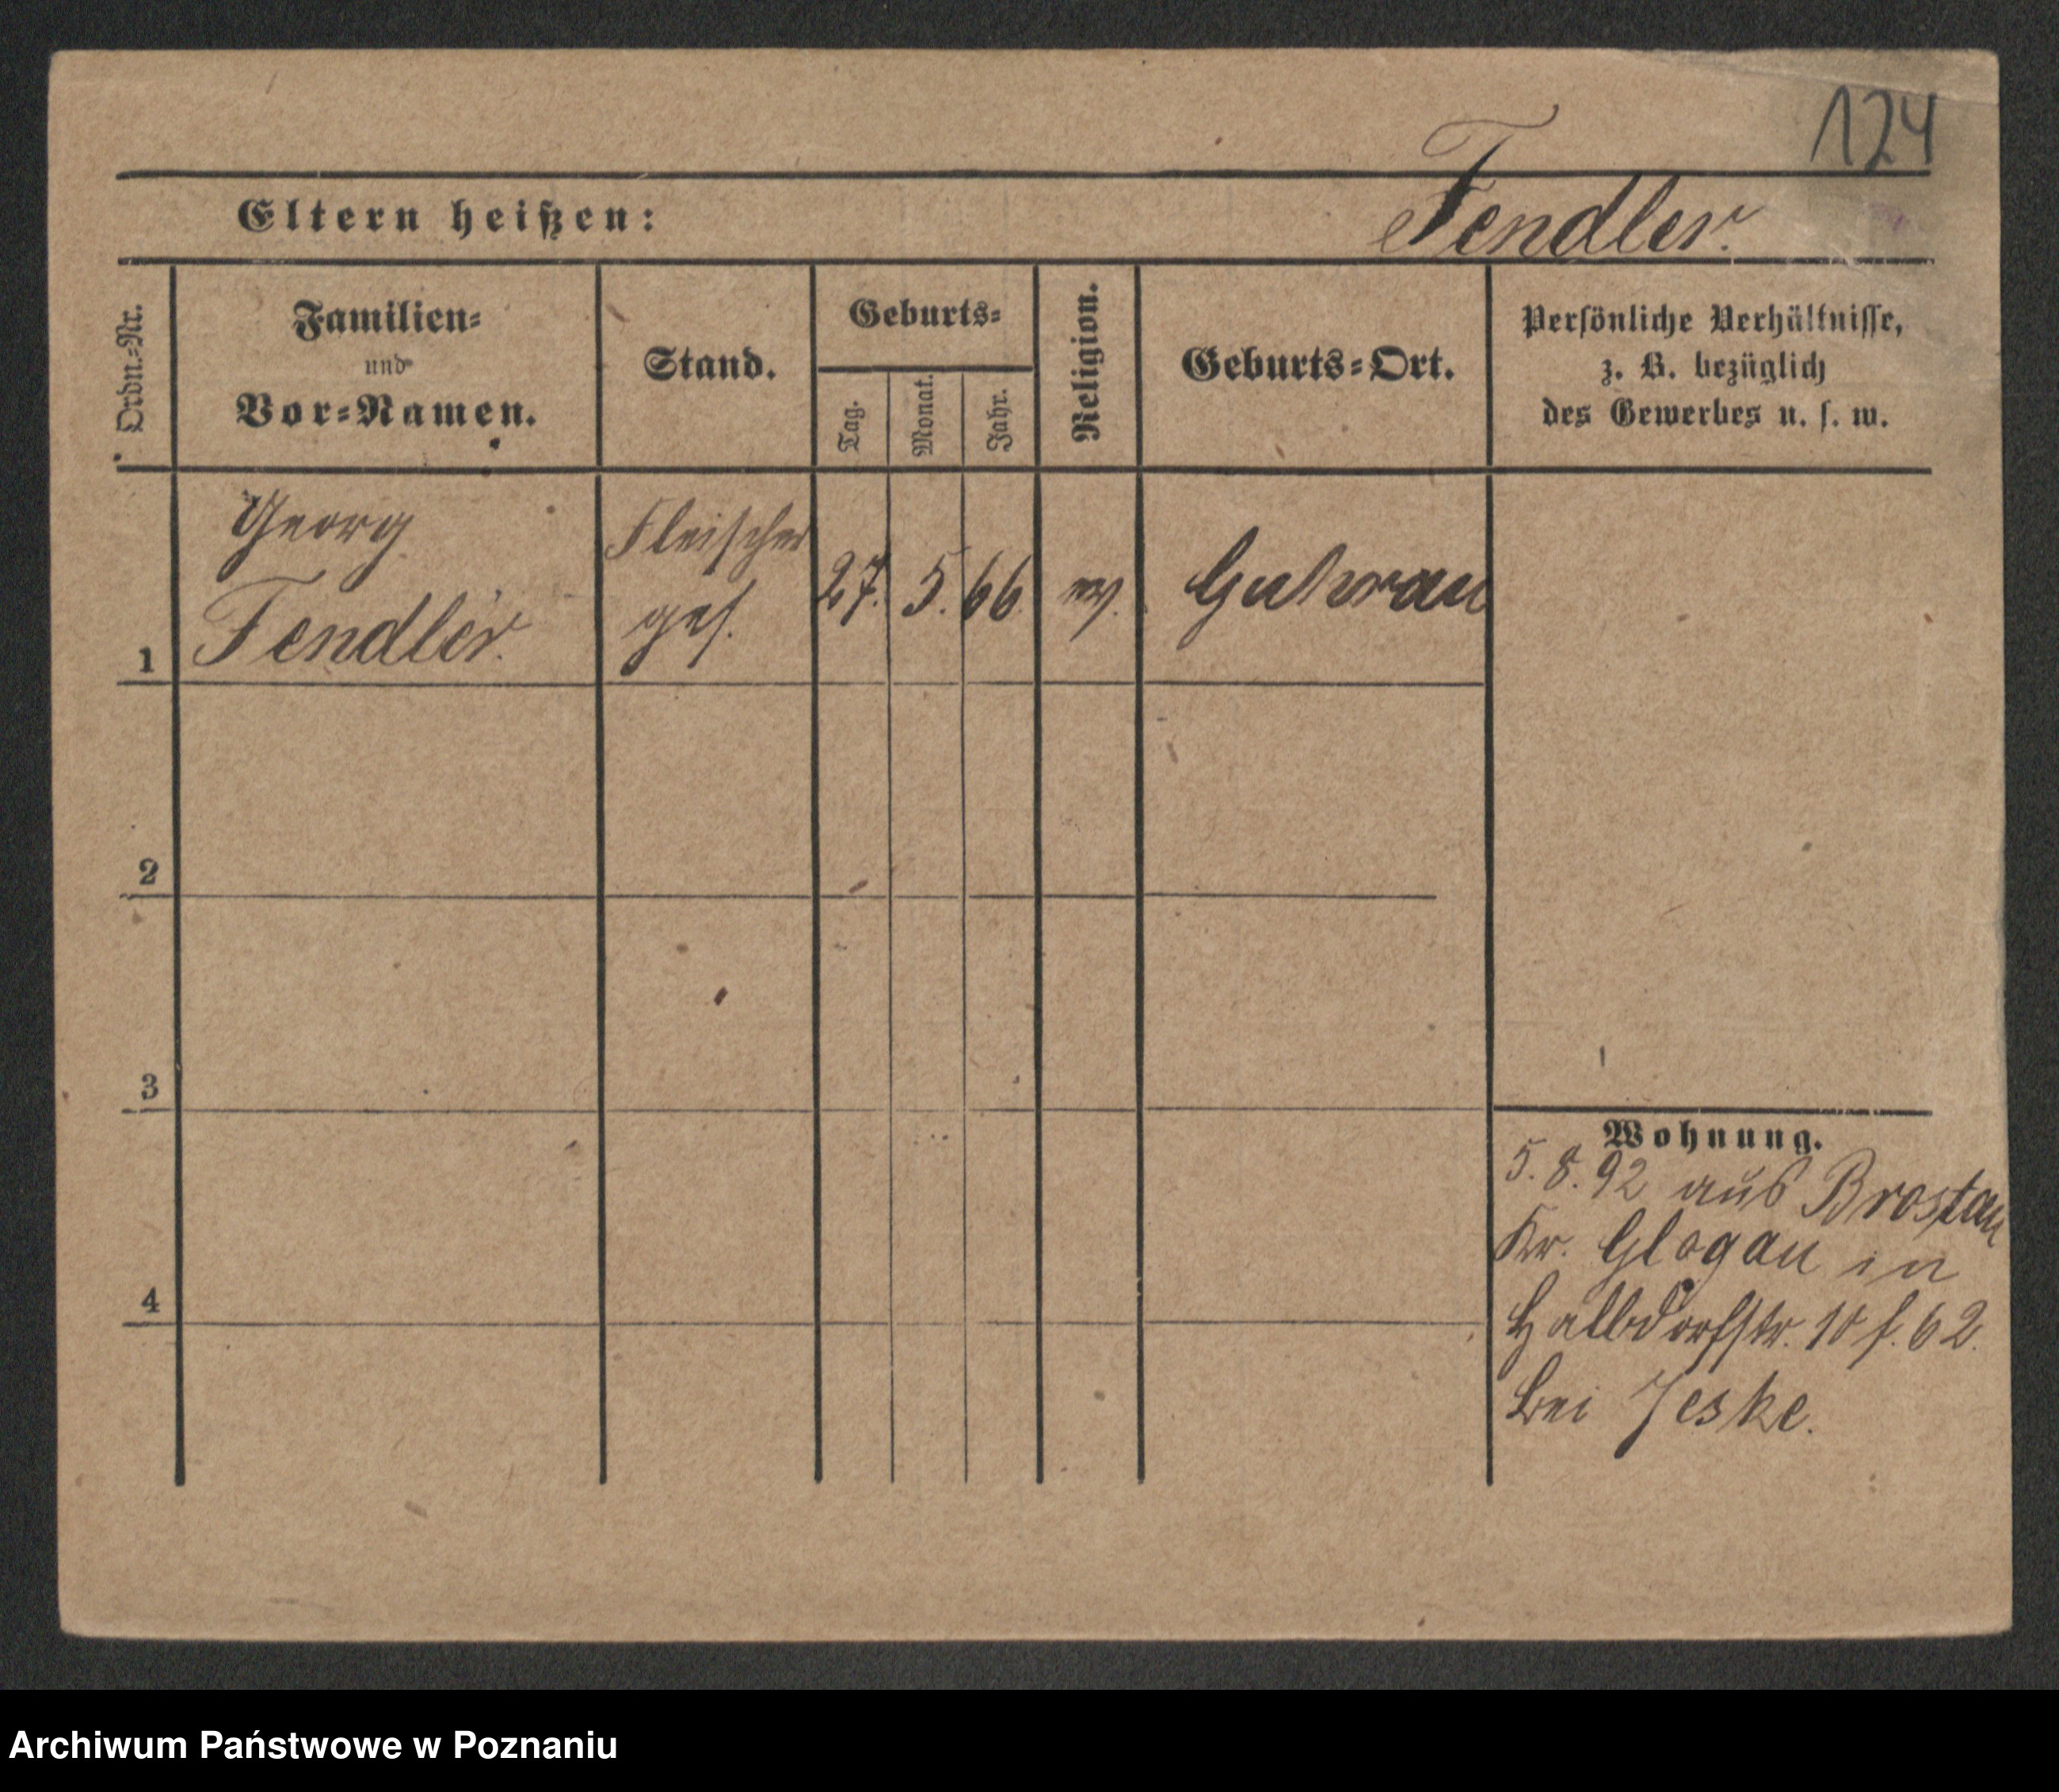 124
Fendler.
Eltern heißen:
Ordn.=Nr.
Familien=
und
Vor=Namen.
Stand.
Geburts=
Tag.
Monat.
Jahr.
Religion.
Geburts=Ort.
Persönliche Verhältnisse,
z. B. bezüglich
des Gewerbes u. s. w.
1
Georg
Fendler.
Fleischer
ges.
27.
5.
66.
ev.
Guhrau
2
3
4
Wohnung.
5.8.92 aus Brostau
Kr. Glogau in
Halbdorfstr. 10 f. 62.
bei Jeske.
Archiwum Państwowe w Poznaniu